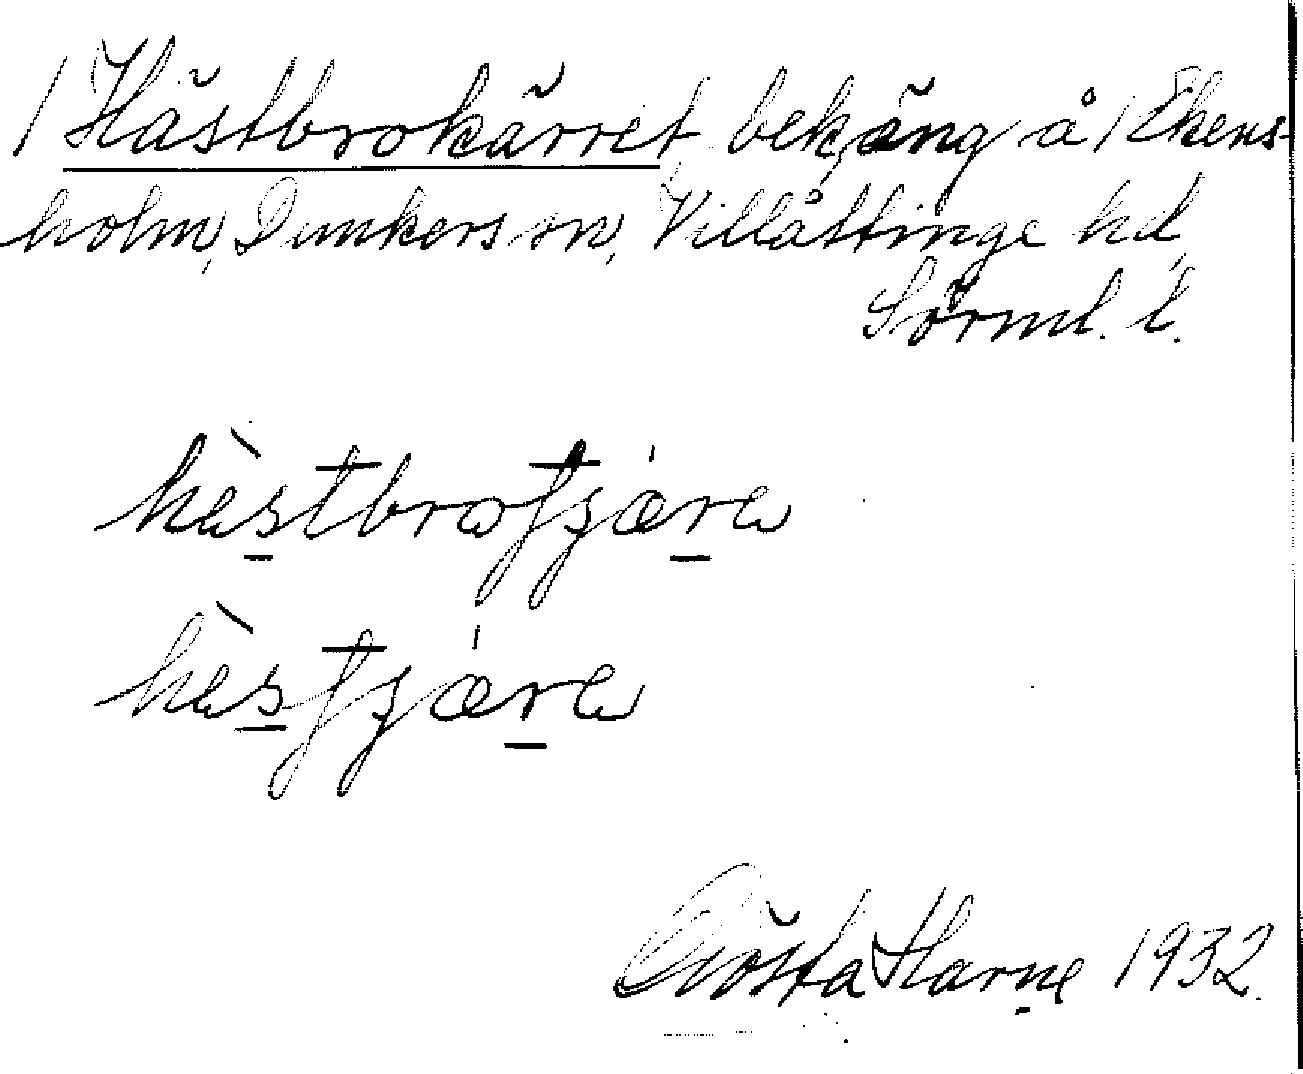 / Hästbrokärret, bek, äng å / Ekens-
holm, Dunkers sn, Villåttinge hd,
Sörml. l.
hèstbrotjǽra
hèstjǽra
Gösta Harne 1932.